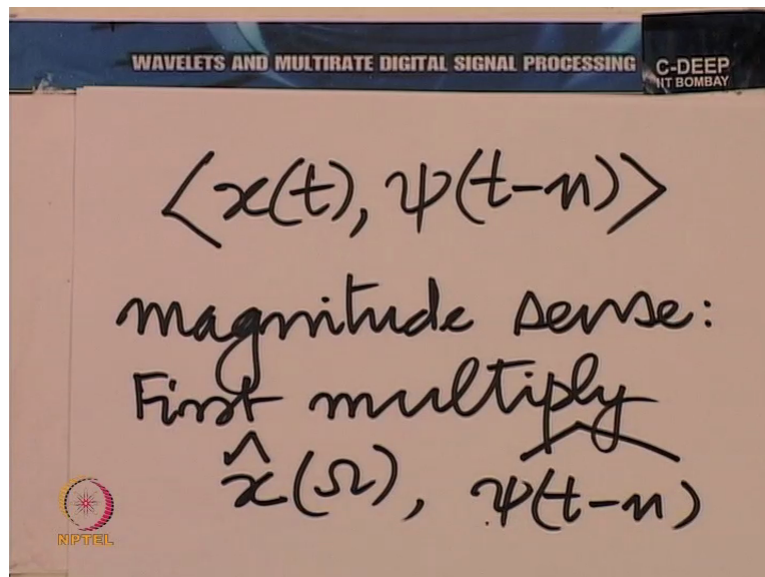 WAVELETS AND MULTIRATE DIGITAL SIGNAL PROCESSING
C-DEEP
IIT BOMBAY
⟨x(t), ψ(t-n)⟩
magnitude sense:
First multiply
x̂(Ω), ψ(t-n)^
NPTEL